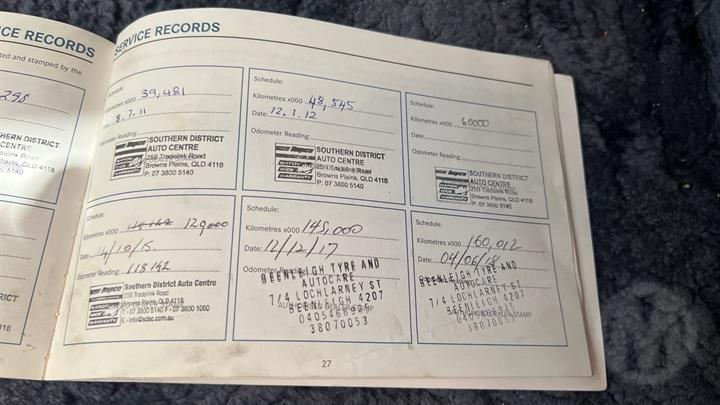 ICE RECORDS
ted and stamped by the
298
HERN DISTRICT
AUTO CENTRE
SERVICE RECORDS
Schedule:
Kilometres x000 39,481
Date: 8.7.11
Odometer Reading:
SOUTHERN DISTRICT
AUTO CENTRE
25B Tradelink Road
Browns Plains, QLD 4118
P: 07 3800 5140
Schedule:
Kilometres x000 48,545
Date: 12.1.12
Odometer Reading:
SOUTHERN DISTRICT
AUTO CENTRE
25B Tradelink Road
Browns Plains, QLD 4118
P: 07 3800 5140
Schedule:
Kilometres x000 60000
Date:
Odometer Reading:
SOUTHERN DISTRICT
AUTO CENTRE
25B Tradelink Road
Browns Plains, QLD 4118
P: 07 3800 5140
Kilometres x000 120,000
Date: 14/10/15
Odometer Reading: 118142
Southern District Auto Centre
25B Tradelink Road
Browns Plains, QLD 4118
T - 07 3800 5140 F - 07 3800 1060
E - info@sdac.com.au
Schedule:
Kilometres x000 145,000
Date: 12/12/17
BEENLEIGH TYRE AND
AUTOCARE
7/4 LOCHLARNEY ST
BEENLEIGH 4207
38070053
Schedule:
Kilometres x000 160,012
Date: 04/06/18
BEENLEIGH TYRE AND
AUTOCARE
7/4 LOCHLARNEY ST
BEENLEIGH 4207
38070053
27